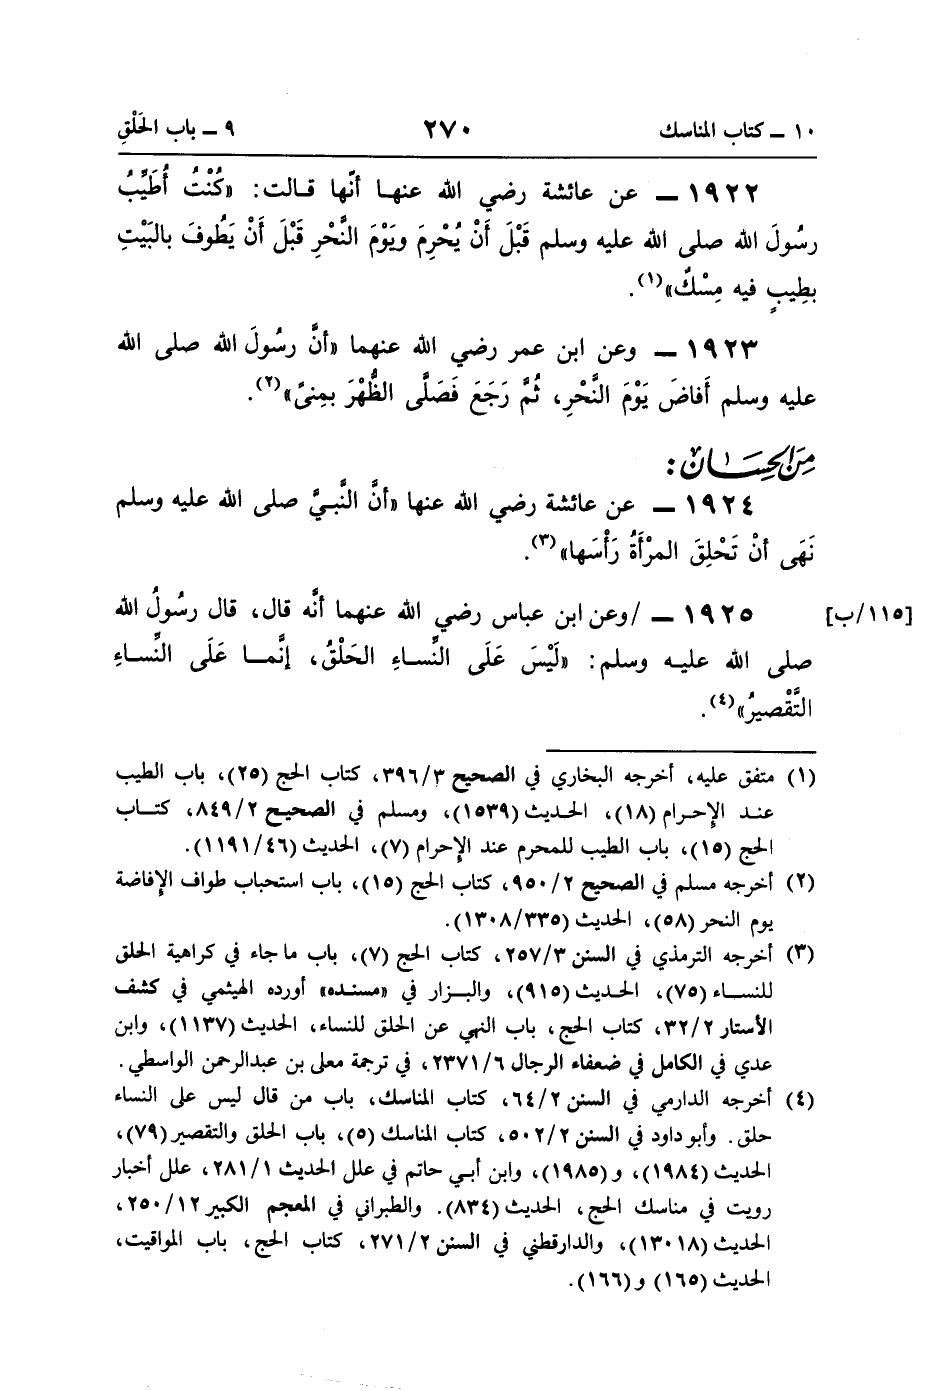 ١٠ ــ كتاب المناسك ٢٧٠ ٩ ــ باب الحَلْقِ
١٩٢٢ ــ عن عائشة رضي الله عنها أنّها قالت: «كُنْتُ أُطَيِّبُ
رسُولَ الله صلى الله عليه وسلم قَبْلَ أَنْ يُحْرِمَ ويَوْمَ النَّحْرِ قَبْلَ أَنْ يَطُوفَ بالبَيْتِ
بطِيبٍ فيه مِسْكٌ»(١).
١٩٢٣ ــ وعن ابن عمر رضي الله عنهما «أنَّ رسُولَ الله صلى الله
عليه وسلم أَفاضَ يَوْمَ النَّحْرِ، ثُمَّ رَجَعَ فَصَلَّى الظُّهْرَ بمِنىً»(٢).
مِنَ الحِسَان:
١٩٢٤ ــ عن عائشة رضي الله عنها «أنَّ النَّبيَّ صلى الله عليه وسلم
نَهَى أنْ تَحْلِقَ المرْأَةُ رَأْسَها»(٣).
١٩٢٥ ــ /وعن ابن عباس رضي الله عنهما أنَّه قال، قال رسُولُ الله [١١٥/ب]
صلى الله عليه وسلم: «لَيْسَ عَلَى النِّساءِ الحَلْقُ، إنَّما عَلَى النِّساءِ
التَّقْصيرُ»(٤).
(١) متفق عليه، أخرجه البخاري في الصحيح ٣٩٦/٣، كتاب الحج (٢٥)، باب الطيب
عند الإحرام (١٨)، الحديث (١٥٣٩)، ومسلم في الصحيح ٨٤٩/٢، كتاب
الحج (١٥)، باب الطيب للمحرم عند الإحرام (٧)، الحديث (١١٩١/٤٦).
(٢) أخرجه مسلم في الصحيح ٩٥٠/٢، كتاب الحج (١٥)، باب استحباب طواف الإفاضة
يوم النحر (٥٨)، الحديث (١٣٠٨/٣٣٥).
(٣) أخرجه الترمذي في السنن ٢٥٧/٣، كتاب الحج (٧)، باب ما جاء في كراهية الحلق
للنساء (٧٥)، الحديث (٩١٥)، والبزار في «مسنده» أورده الهيثمي في كشف
الأستار ٣٢/٢، كتاب الحج، باب النهي عن الحلق للنساء، الحديث (١١٣٧)، وابن
عدي في الكامل في ضعفاء الرجال ٢٣٧١/٦، في ترجمة معلى بن عبدالرحمن الواسطي.
(٤) أخرجه الدارمي في السنن ٦٤/٢، كتاب المناسك، باب من قال ليس على النساء
حلق. وأبو داود في السنن ٥٠٢/٢، كتاب المناسك (٥)، باب الحلق والتقصير (٧٩)،
الحديث (١٩٨٤)، و (١٩٨٥)، وابن أبي حاتم في علل الحديث ٢٨١/١، علل أخبار
رويت في مناسك الحج، الحديث (٨٣٤). والطبراني في المعجم الكبير ٢٥٠/١٢،
الحديث (١٣٠١٨)، والدارقطني في السنن ٢٧١/٢، كتاب الحج، باب المواقيت،
الحديث (١٦٥) و(١٦٦).